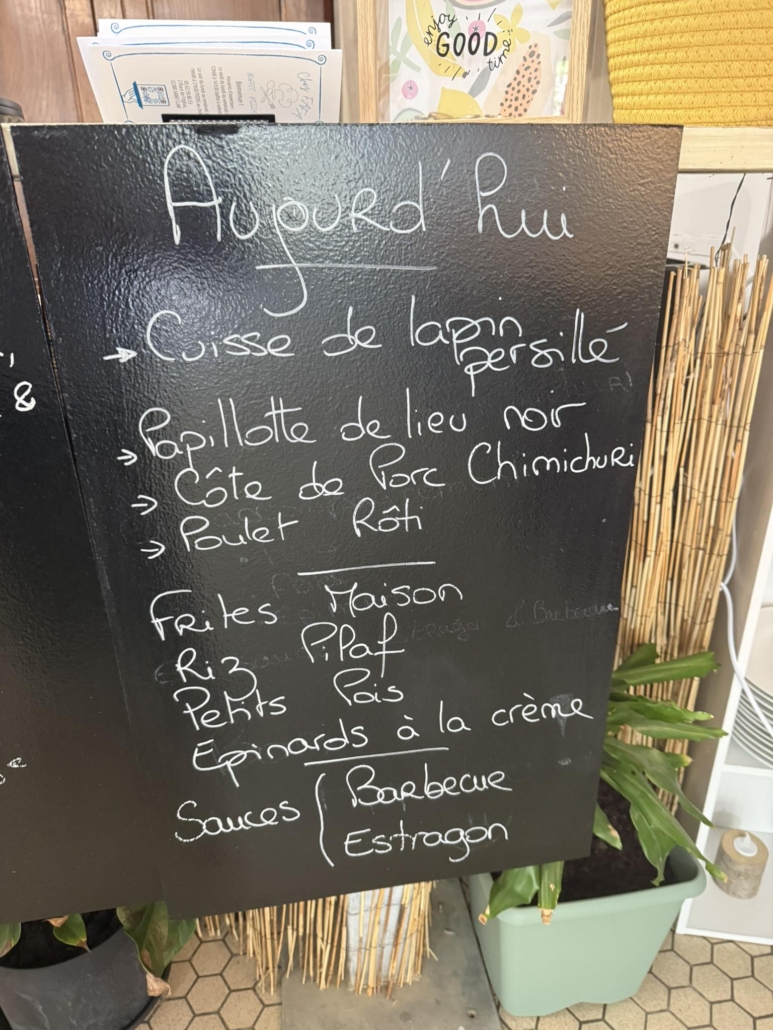 enjoy
GOOD
time
Aujourd'hui
→ Cuisse de lapin
persillé
→ Papillotte de lieu noir
→ Côte de Porc Chimichuri
→ Poulet Rôti
Frites Maison
Riz Pilaf
Petits Pois
Epinards à la crème
Sauces ( Barbecue
Estragon
&